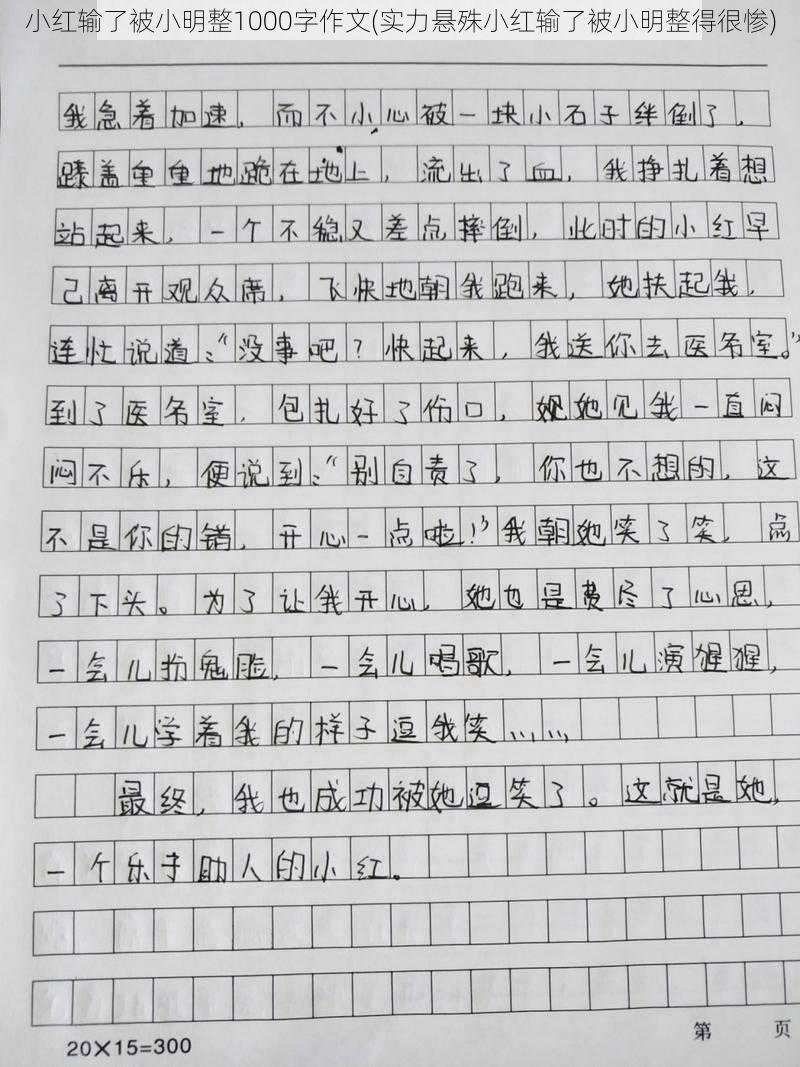 小红输了被小明整1000字作文(实力悬殊小红输了被小明整得很惨)
我急着加速，而不小心被一块小石子绊倒了，
膝盖重重地跪在地上，流出了血，我挣扎着想
站起来，一个不稳又差点摔倒，此时的小红早
已离开观众席，飞快地朝我跑来，她扶起我，
连忙说道：“没事吧？快起来，我送你去医务室。”
到了医务室，包扎好了伤口，她见我一直闷
闷不乐，便说到：“别自责了，你也不想的，这
不是你的错，开心一点啦！”我朝她笑了笑，点
了下头。为了让我开心，她也是费尽了心思，
一会儿扮鬼脸，一会儿唱歌，一会儿演猩猩，
一会儿学着我的样子逗我笑……
最终，我也成功被她逗笑了。这就是她，
一个乐于助人的小红。
20×15=300
第 页